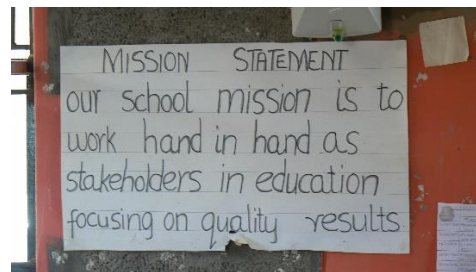 MISSION STATEMENT
our school mission is to
work hand in hand as
stakeholders in education
focusing on quality results